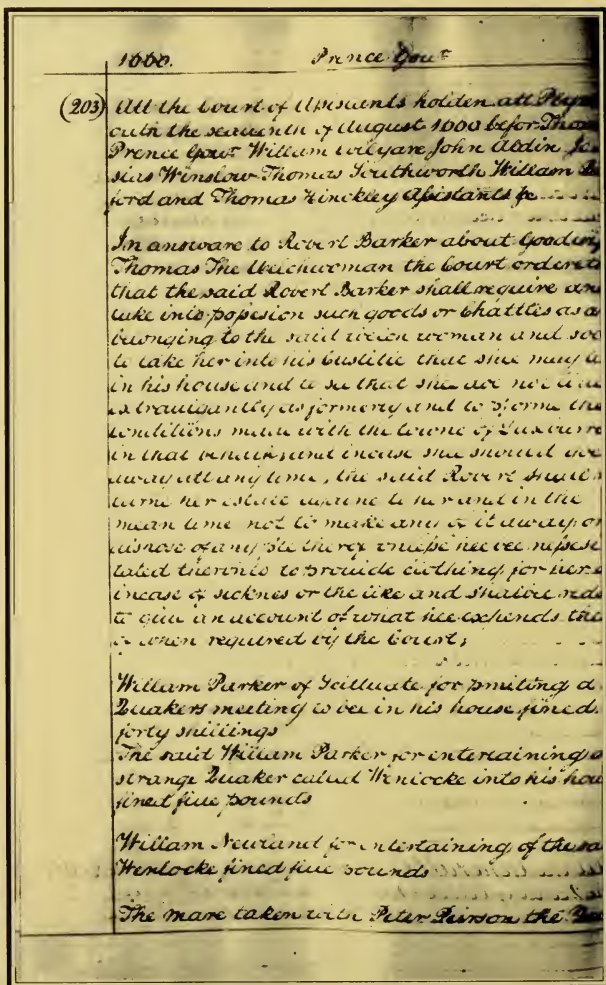 1660. Prence Gou^r
(203) Att the Court of Assistants holden att Plym
outh the seauenth of August 1660 befor Thom
Prence Gou^r William Collyare John Aldin Jo
sias Winslow Thomas Southworth William B
ford and Thomas Hinckley Assistants &c
In answare to Robert Barker about Goodwif
Thomas The Welchwoman the Court ordereth
that the said Robert Barker shall require and
take into possesion such goods or Chattles as a
belonging to the said welch woman and soe
to take her into his Custitie that shee may
in his house and to se that shee doe not
extrauigantly as formerly and to pforme the
conditions made with the towne of Duxburrow
in that behalfe, and incase shee should goe
away att any time, the said Robert shall
turne her estate againe to her and in the
mean time not to make any of it away or
dispose of any pte therof vnlesse hee bee nessesi
tated thervnto to prouide clothing for her
incase of sicknes or the like and shalbee redy
to giue an account of what hee expends
when required by the Court;
William Parker of Scittuate for pmiting a
Quakers meeting to bee in his house fined
forty shillings
The said William Parker for entertaining a
strange Quaker called Wenlocke into his hou
fined fiue pounds
William Newland for entertaining of the sa
Wenlocke fined fiue pounds
The mare taken with Peter Peirson the